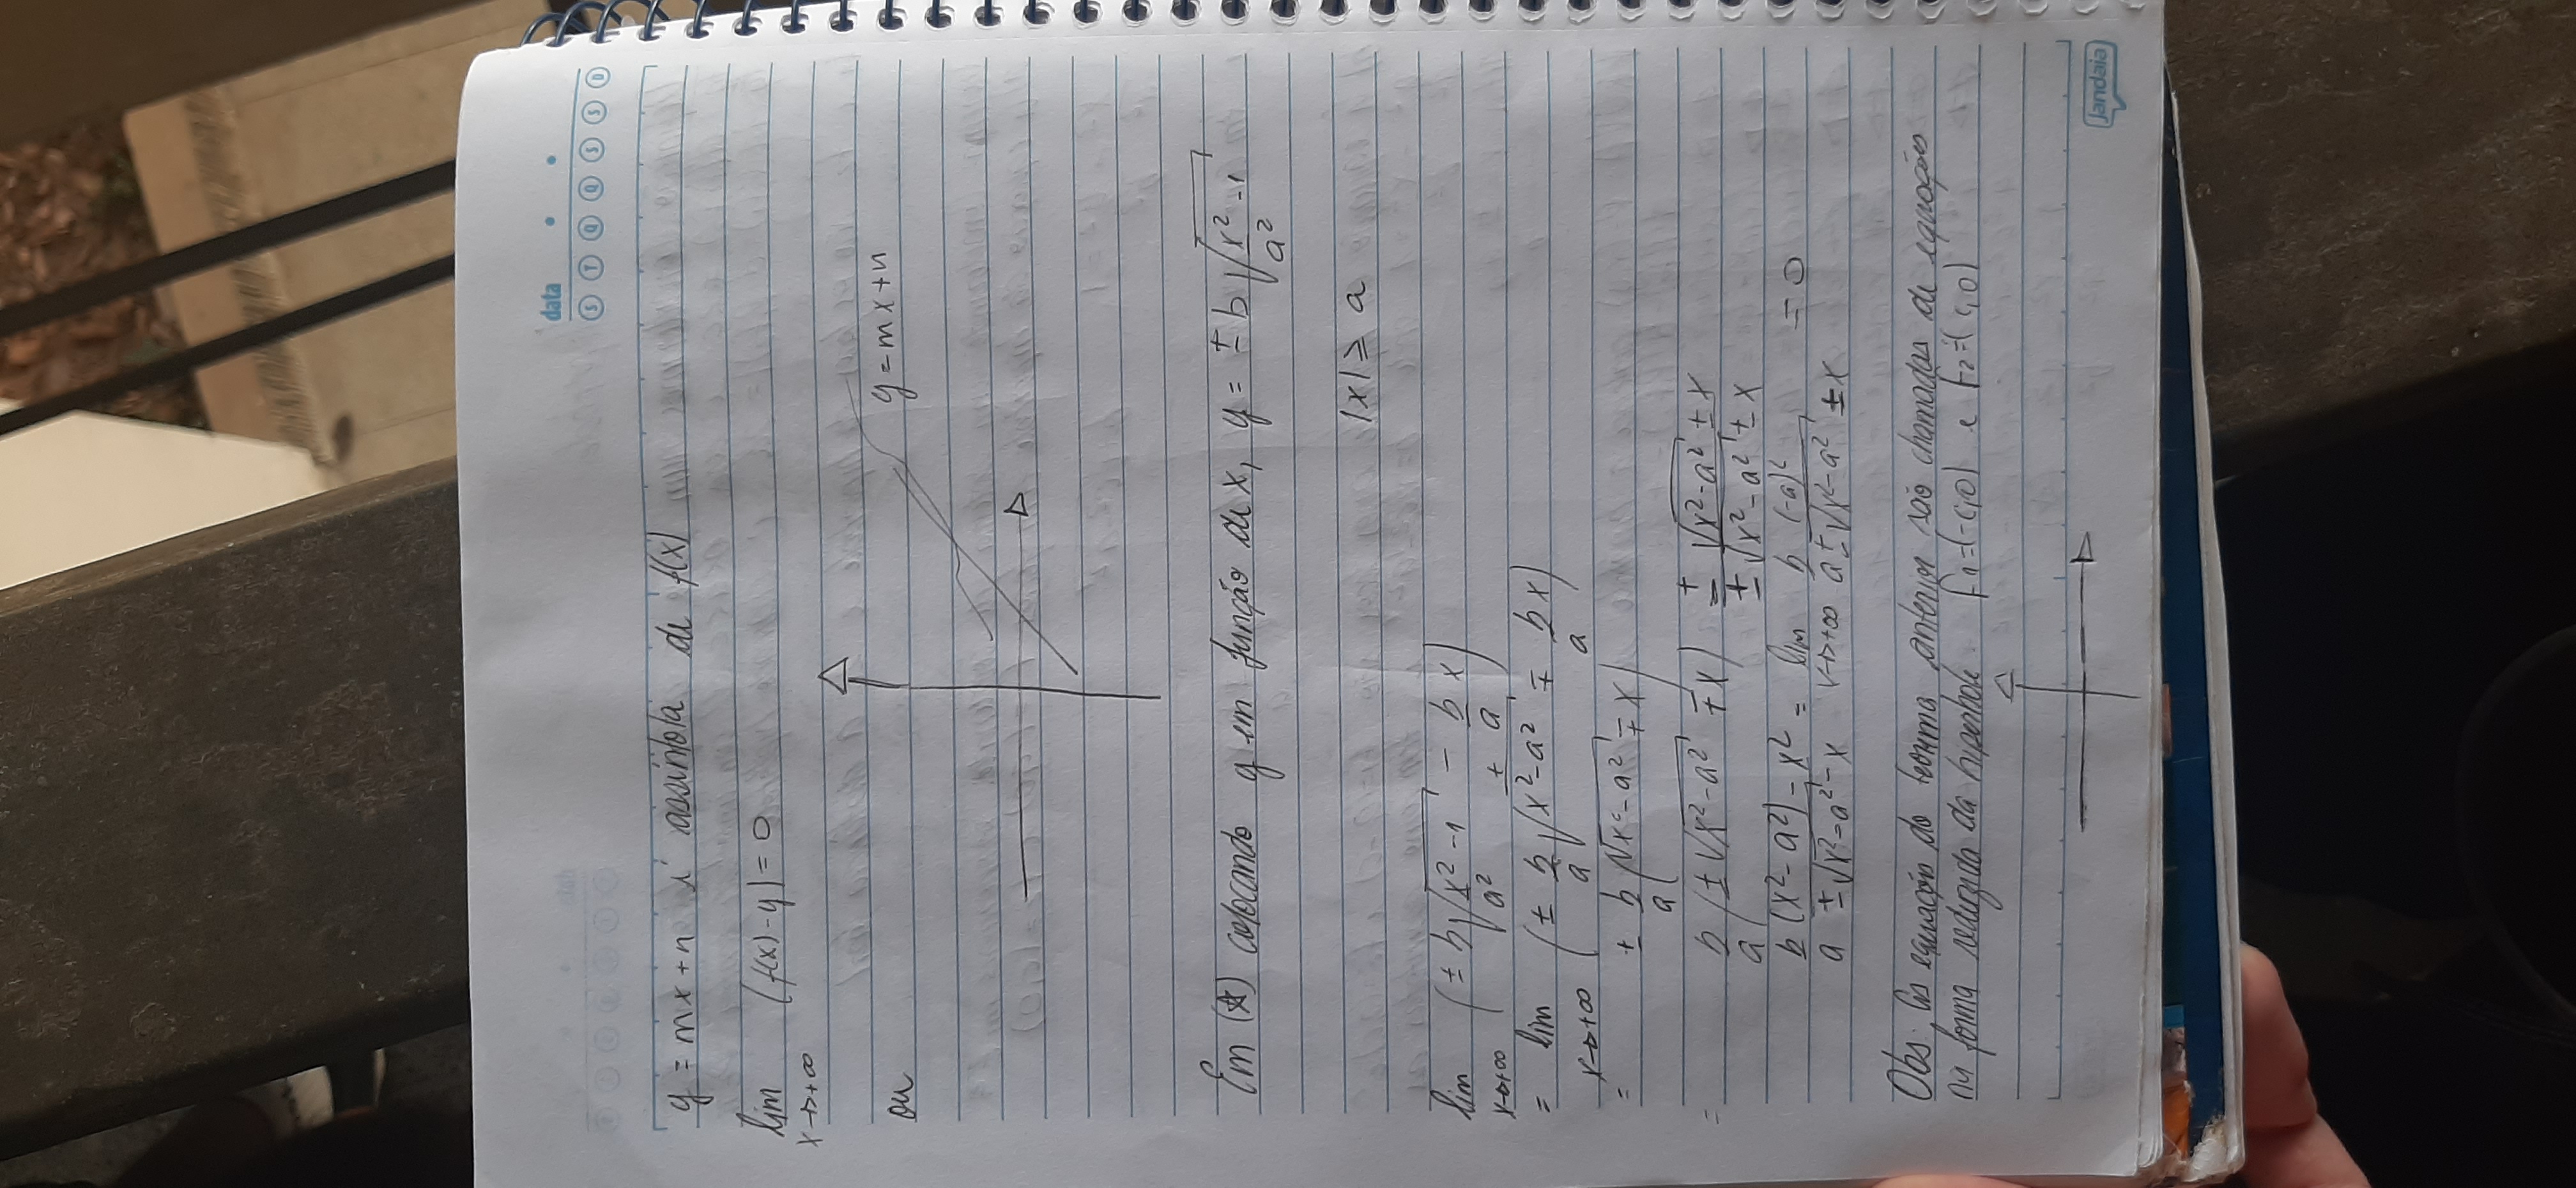 data
S T Q Q S S D
y = mx + n é assíntota de f(x)
lim (f(x) - y) = 0
x→+∞
ou
y = mx + n
Em (☆) colocando y em função de x, y = ± b √(x²/a² - 1)
|x| ≥ a
lim (± b √(x²/a² - 1) - ± b/a x)
x→+∞
= lim (± b/a √(x² - a²) ∓ b/a x)
x→+∞
= ± b/a (√(x² - a²) ∓ x)
= b/a (± √(x² - a²) ∓ x) ± √(x² - a²) ± x / ± √(x² - a²) ± x
b/a (x² - a²) - x² / ± √(x² - a²) - x = lim b/a (-a)² / ± √(x² - a²) ± x = 0
x→+∞
Obs: As equações do teorema anterior são chamadas de equações
na forma reduzida da hiperbole. F1 = (-c,0) e F2 = (c,0)
Jandaia